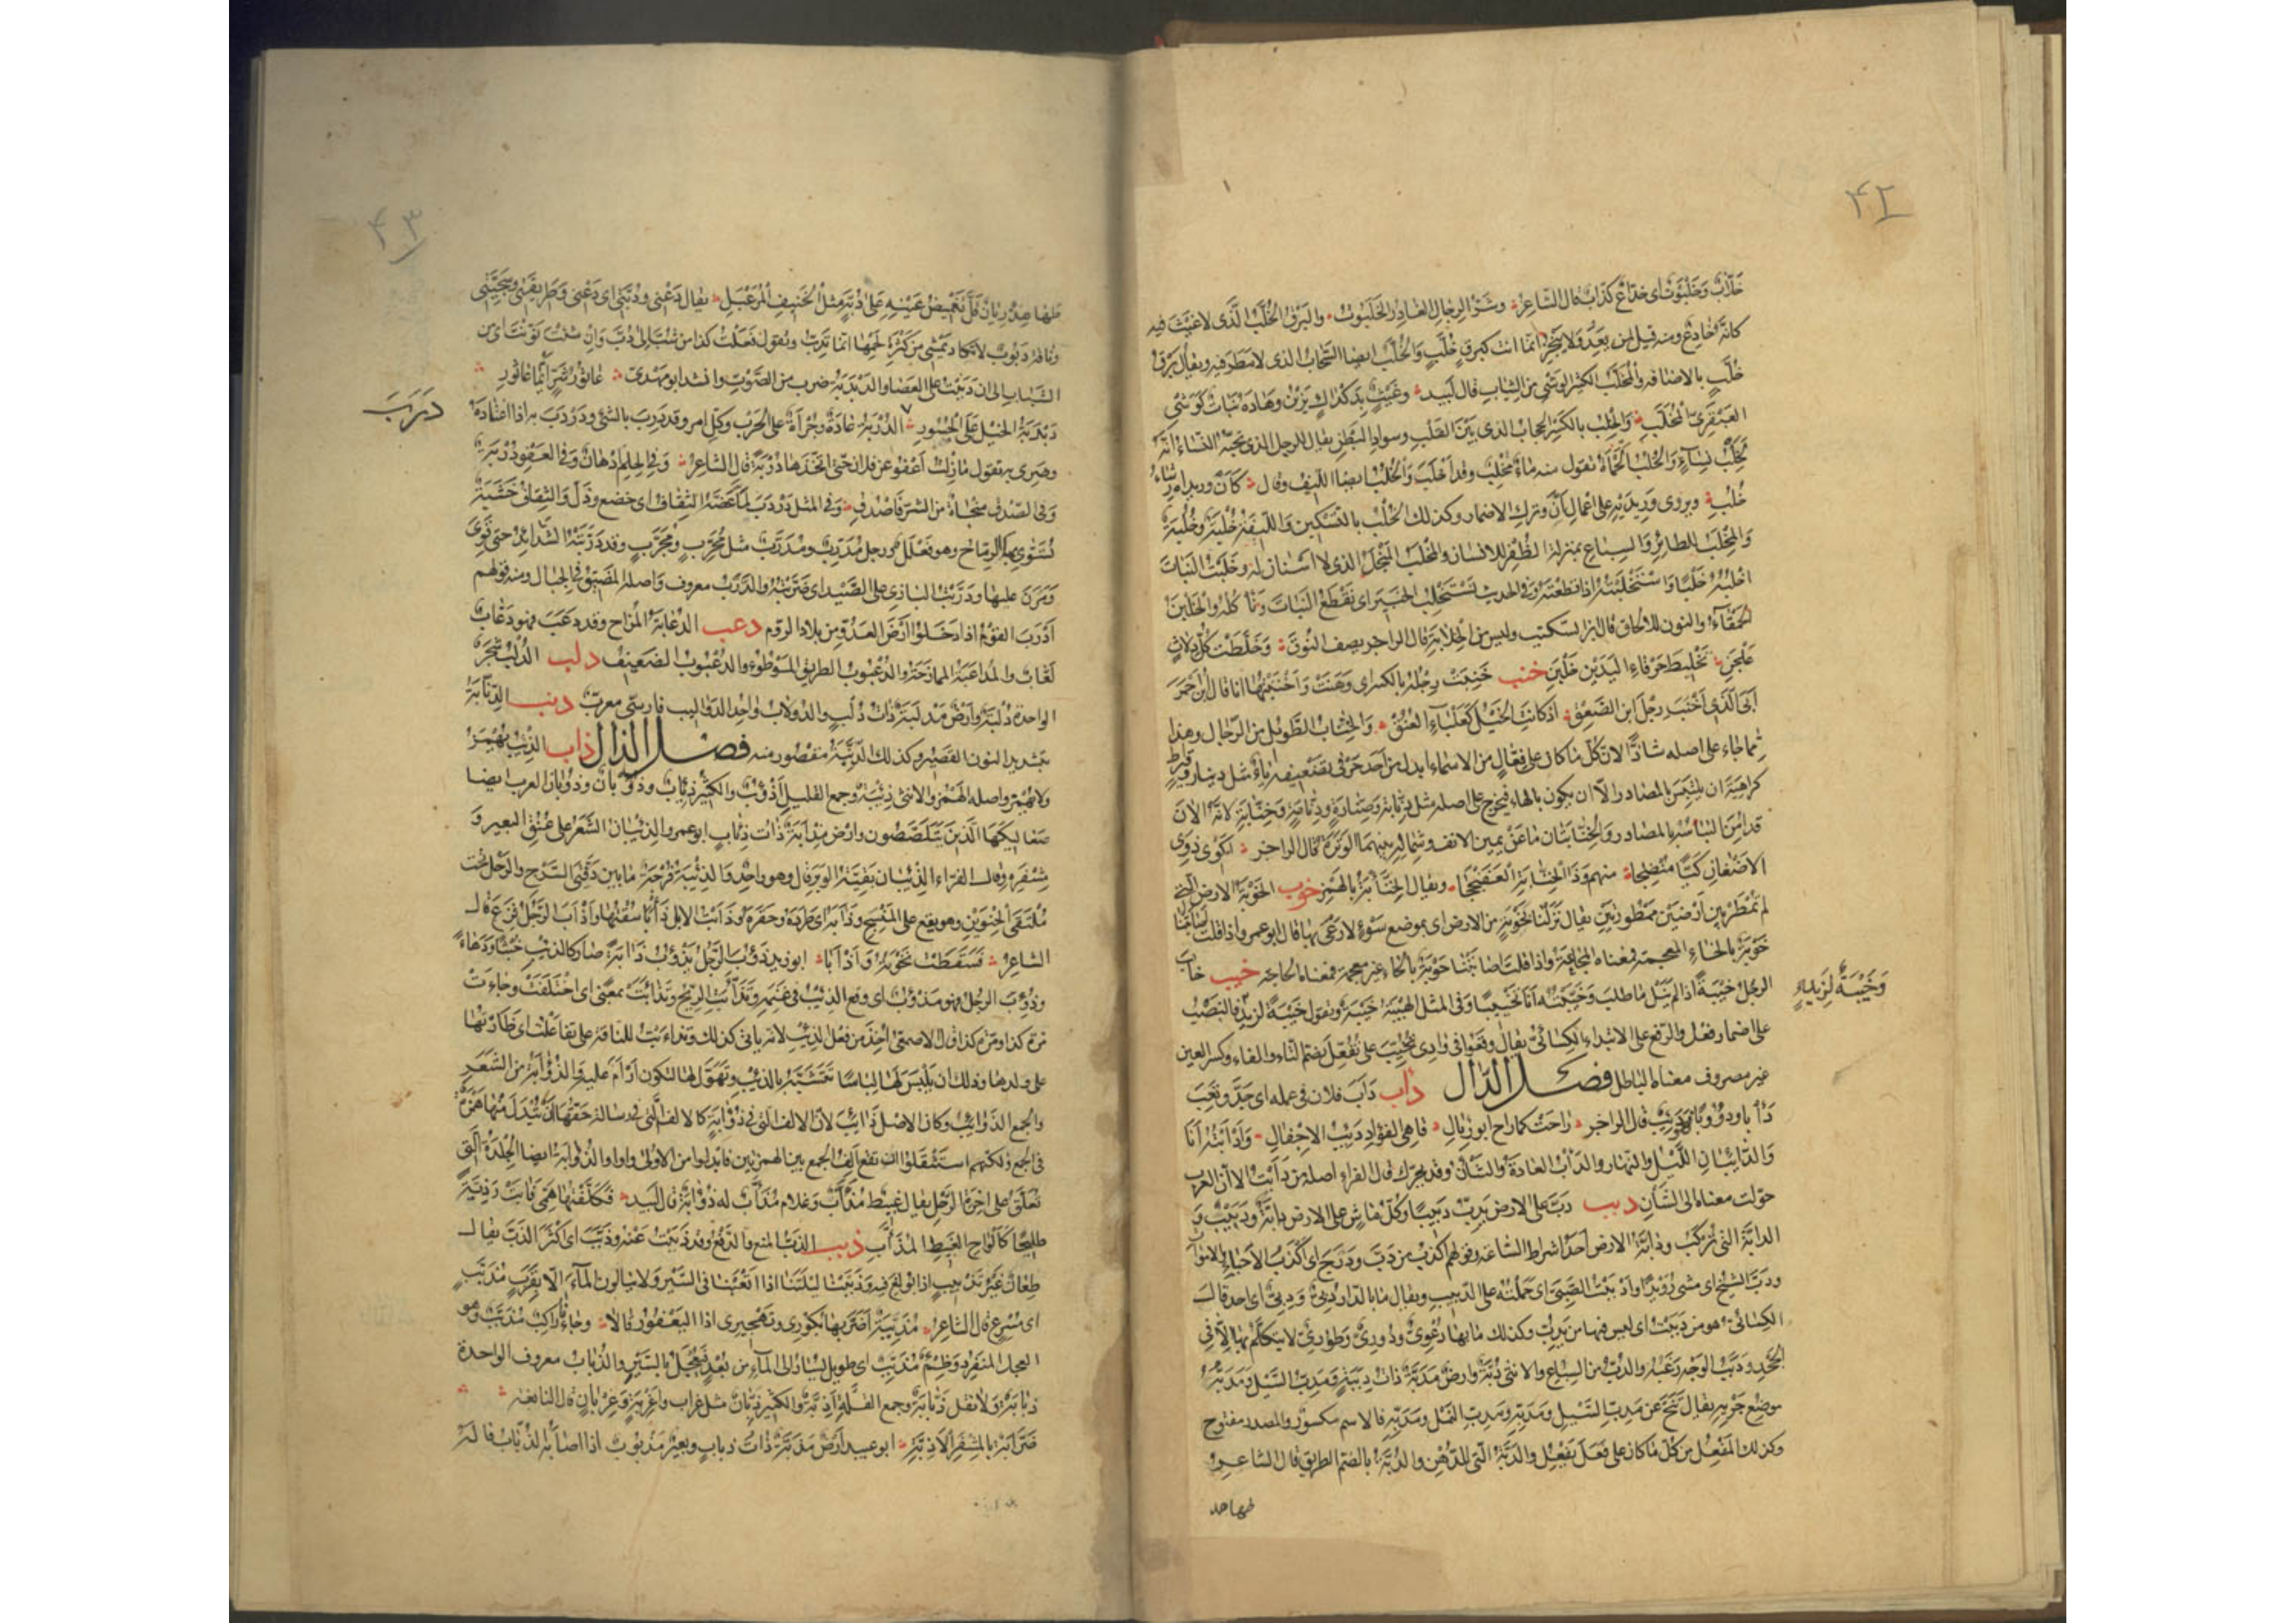 ٤٢
خَلَّابٌ وَخَلَبُوتٌ اى خدّاع كذّاب قال الشاعر وشرّ الرجال الغادر الخلبوت والبرق الخلّب الذى لا غيث فيه
كانّه خادع ومنه قيل لمن يعد ولا ينجز انّما انت كبرق خلّب والخلّب ايضا السحاب الذى لا مطر فيه ويقال برق
خلّب بالاضافة والمخلّب الكثير الوشى من الثياب قال لبيد وغيث بدكداك يزين وهاده نبات كوشى
العبقرىّ المخلّب والخلب بالكسر الحجاب الذى بين القلب وسواد البطن يقال للرجل الذى تحبّه النساء انّه
لخلب نساء والخلب الحمأة تقول منه ماء مخلب وقد اخلب والخلب ايضا الليف وقال كأن وريداه رشاء
خلب ويروى وريديه على اعمال كأنّ وترك الاضمار وكذلك الخلب بالتسكين والليفة خلبة وخلبة
والمخلب للطائر والسباع بمنزلة الظفر للانسان والمخلب المنجل الذى لا اسنان له وخلبت النبات
اخلبه خلبا واستخلبته اذا قطعته وفى الحديث نستخلب الخبير اى نقطع النبات وناكله والخلبن
الحمقاء والنون للالحاق قال ابن السكيت وليس من الخلابة قال الراجز يصف النوق وخلّطت كلّ دلاث
علجن تخليط خرقاء اليدين خلبن خنب خنبت رجله بالكسر اى وهنت واخنبتها انا قال ابن احمر
ابى الذى اخنب رجل ابن الصعق اذ كانت الخيل كعلباء العنق والخنّاب الطويل من الرجال وهذا
ممّا جاء على اصله شاذّا لانّ كلّ ما كان على فعّال من الاسماء ابدل من احد حرفى تضعيفه ياء مثل دينار وقيراط
كراهية ان يلتبس بالمصادر الّا ان يكون بالهاء فيخرج على اصله مثل دنّابة وصنّارة ودنّامة وخنّابة لانّه الآن
قد امن التباسه بالمصادر والخنّابتان ما عن يمين الانف وشماله بينهما الوترة قال الراجز اكوى ذوى
الاضغان كيّا منضجا منهم وذا الخنّابة العفنججا ويقال الخنّأبة بالهمز خوب الخوبة الارض التى
لم تمطر بين ارضين ممطورتين يقال نزلنا بخوبة من الارض اى بموضع سوء لا رعى بها قال ابو عمرو اذا قلت اصابتنا
خوبة بالخاء المعجمة فمعناه المجاعة واذا قلت اصابتنا حوبة بالحاء غير معجمة فمعناه الحاجة خيب خاب
الرجل خيبة اذا لم ينل ما طلب وخيّبته انا تخييبا وفى المثل الهيبة خيبة وتقول خيبة لزيد فالنصب
وَخَيْبَةٌ لِزَيدٍ
على اضمار فعل والرفع على الابتداء الكسائىّ يقال وقعوا فى وادى تخيّب على تفعّل بضم التاء والفاء وكسر العين
غير مصروف معناه الباطل فصل الدال دأب دأب فلان فى عمله اى جدّ وتعب
دأبا ودؤوبا فهو دئيب قال الراجز راحت كما راح ابو رئال قاهى الفؤاد دئيب الاجفال وادأبته انا
والدائبان الليل والنهار والدأب العادة والشأن وقد يحرّك قال الفراء اصله من دأبت الّا انّ العرب
حوّلت معناه الى الشأن دبب دبّ على الارض يدبّ دبيبا وكلّ ماش على الارض دابّة ودبيب و
الدابّة التى تركب ودابّة الارض احد اشراط الساعة وقولهم اكذب من دبّ ودرج اى اكذب الاحياء والاموات
ودبّ الشيخ اى مشى رويدا وادببت الصبىّ اى حملته على الدبيب ويقال ما بالدار دبّىّ ودبّىّ اى احد قال
الكسائىّ هو من دببت اى ليس فيها من يدبّ وكذلك ما بها دعوىّ ودورىّ وطورىّ لا يتكلّم بها الّا فى
الجحد ودبب الوجه زغبه والدبّ من السباع والانثى دبّة وارض مدبّة ذات دببة ومدبّ السيل ومدبّه
موضع جريه يقال تنحّ عن مدبّ السيل ومدبّه ومدبّ النمل ومدبّه فالاسم مكسور والمصدر مفتوح
وكذلك المفعل من كلّ ما كان على فعل يفعل والدبّة التى للدهن والدبّة بالضم الطريق قال الشاعر
طها هد
٤٣
طها هذريان قلّ تغميض عينه على دبّة مثل الخنيف المرعبل يقال دعنى ودبّتى اى دعنى وطريقتى وسجيّتى
وناقة دبوب لا تكاد تمشى من كثرة لحمها انّما تدبّ وتقول فعلت كذا من شبّ الى دبّ وان شئت نوّنت اى من
الشباب الى ان دببت على العصا والدبدبة ضرب من الصوت وانشد ابو مهدىّ عاثور شرّ ايّما عاثور
دبدبة الخيل على الجسور الدربة عادة وجرأة على الحرب وكلّ امر وقد درب بالشئ ودردب به اذا اعتاده
دَرَبَ
وضرى به تقول ما زلت اعفو عن فلان حتى اتّخذها دربة قال الشاعر وفى الحلم ادهان وفى العفو دربة
وفى الصدق منجاة من الشرّ فاصدق وفى المثل دردب لمّا عضّه الثقاف اى خضع وذلّ والثقاف خشبة
تسوّى بها الرماح وهو فعلل ورجل مدرّب ومدرّب مثل مجرّب ومجرّب وقد درّبته الشدائد حتى قوى
ومرن عليها ودرّبت البازى على الصيد اى ضرّيته والدرب معروف واصله المضيق فى الجبال ومنه قولهم
ادرب القوم اذا دخلوا ارض العدوّ من بلاد الروم دعب الدعابة المزاح وقد دعب فهو دعّاب
لعّاب والمداعبة الممازحة والدعبوب الطريق الموطوء والدعبوب الضعيف دلب الدلب شجرة
الواحدة دلبة وارض مدلبة ذات دلب والدولاب واحد الدواليب فارسىّ معرّب دنب الدنّابة
بتشديد النون القصير وكذلك الدنّبة مقصور منه فصل الذال ذأب الذئب يهمز
ولا يهمز واصله الهمز والانثى ذئبة وجمع القليل اذؤب والكثير ذئاب وذؤبان وذؤبان العرب ايضا
صعاليكها الذين يتلصّصون وارض مذأبة ذات ذئاب ابو عمرو الذئبان الشعر على عنق البعير و
مشفره وقال الفراء الذئبان بقيّة الوبر قال وهو واحد والذئبة فرجة ما بين دفّتى السرج والرحل تحت
ملتقى الحنوين وهو يقع على المنسج وذأبه اى طرده وحقره وذأبت الابل ذأبا سقتها واذأب الرجل فزع قال
الشاعر فسقطت نخوته واذأبا ابو زيد ذؤب الرجل يذؤب ذآبة صار كالذئب خبثا ودهاء
وذئب الرجل فهو مذؤوب اى وقع الذئب فى غنمه وتذأّبت الريح وتذاءبت بمعنى اى اختلفت وجاءت
مرّة كذا ومرّة كذا قال الاصمعىّ اخذ من فعل الذئب لانه ياتى كذلك وتذاءبت للناقة على تفاعلت اى ظأرتها
على ولدها وذلك ان يلبس لها لباسا يتشبّه بالذئب وتهوّل لها لتكون ارأم عليه والذؤابة من الشعر
والجمع الذوائب وكان الاصل ذآئب لانّ الالف التى فى ذؤابة كالالف التى فى رسالة حقّها ان تبدل منها همزة
فى الجمع ولكنّهم استثقلوا ان تقع الف الجمع بين الهمزتين فابدلوا من الاولى واوا والذؤابة ايضا الجلدة التى
تعلّق على آخرة الرحل يقال غبيط مذأّب وغلام مذأّب له ذؤابة قال لبيد فكلّفتها همّى فآبت رذيّة
طليحا كالواح الغبيط المذأّب ذبب الذبّ المنع والدفع وقد ذببت عنه وذبّب اى اكثر الذبّ يقال
طعان غير تذبيب اذا بولغ فيه وذبّبنا ليلتنا اذا اتعبنا فى السير ولا ينالون الماء الّا بقرب مذبّب
اى مسرع قال الشاعر مذبّبة اضرّ بها بكورى وتهجيرى اذا اليعفور قالا وجاءنا راكب مذبّب وهو
العجل المنفرد وظمء مذبّب اى طويل يسار الى الماء من بعد فيعجّل بالسير والذباب معروف الواحدة
ذبابة ولا تقل ذبّانة وجمع القلّة اذبّة والكثير ذبّان مثل غراب واغربة وغربان قال النابغة
ضرّابة بالمشفر الاذبّة ابو عبيد ارض مذبّة ذات ذباب وبعير مذبوب اذا اصابه الذباب قاله